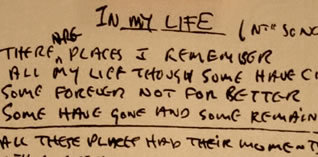 IN MY LIFE
ARE
THERE PLACES I REMEMBER
ALL MY LIFE THOUGH SOME HAVE C
SOME FOREVER NOT FOR BETTER
SOME HAVE GONE AND SOME REMAIN
ALL THESE PLACES HAD THEIR MOMENT